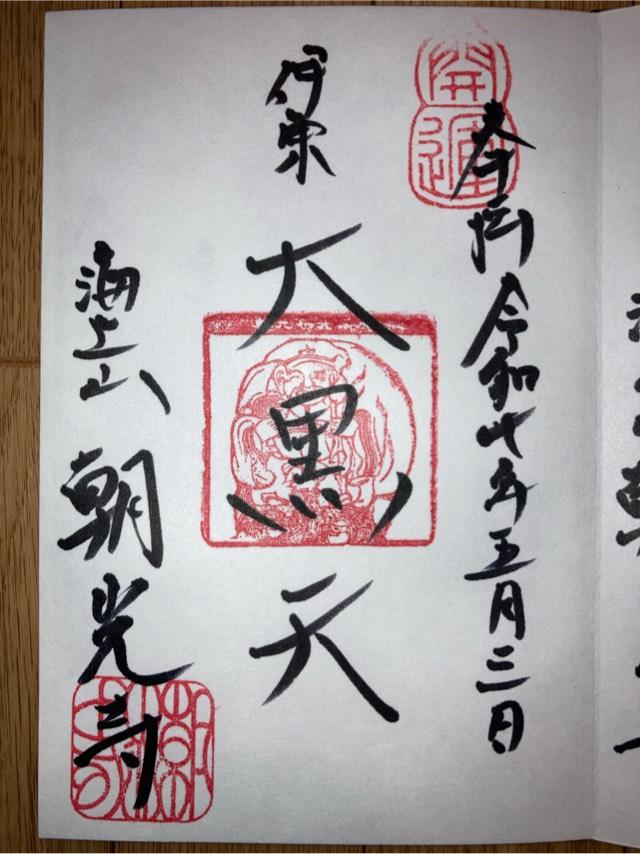 開運
奉拝 令和七年五月三日
伊東 大黒天
海上山 朝光寺